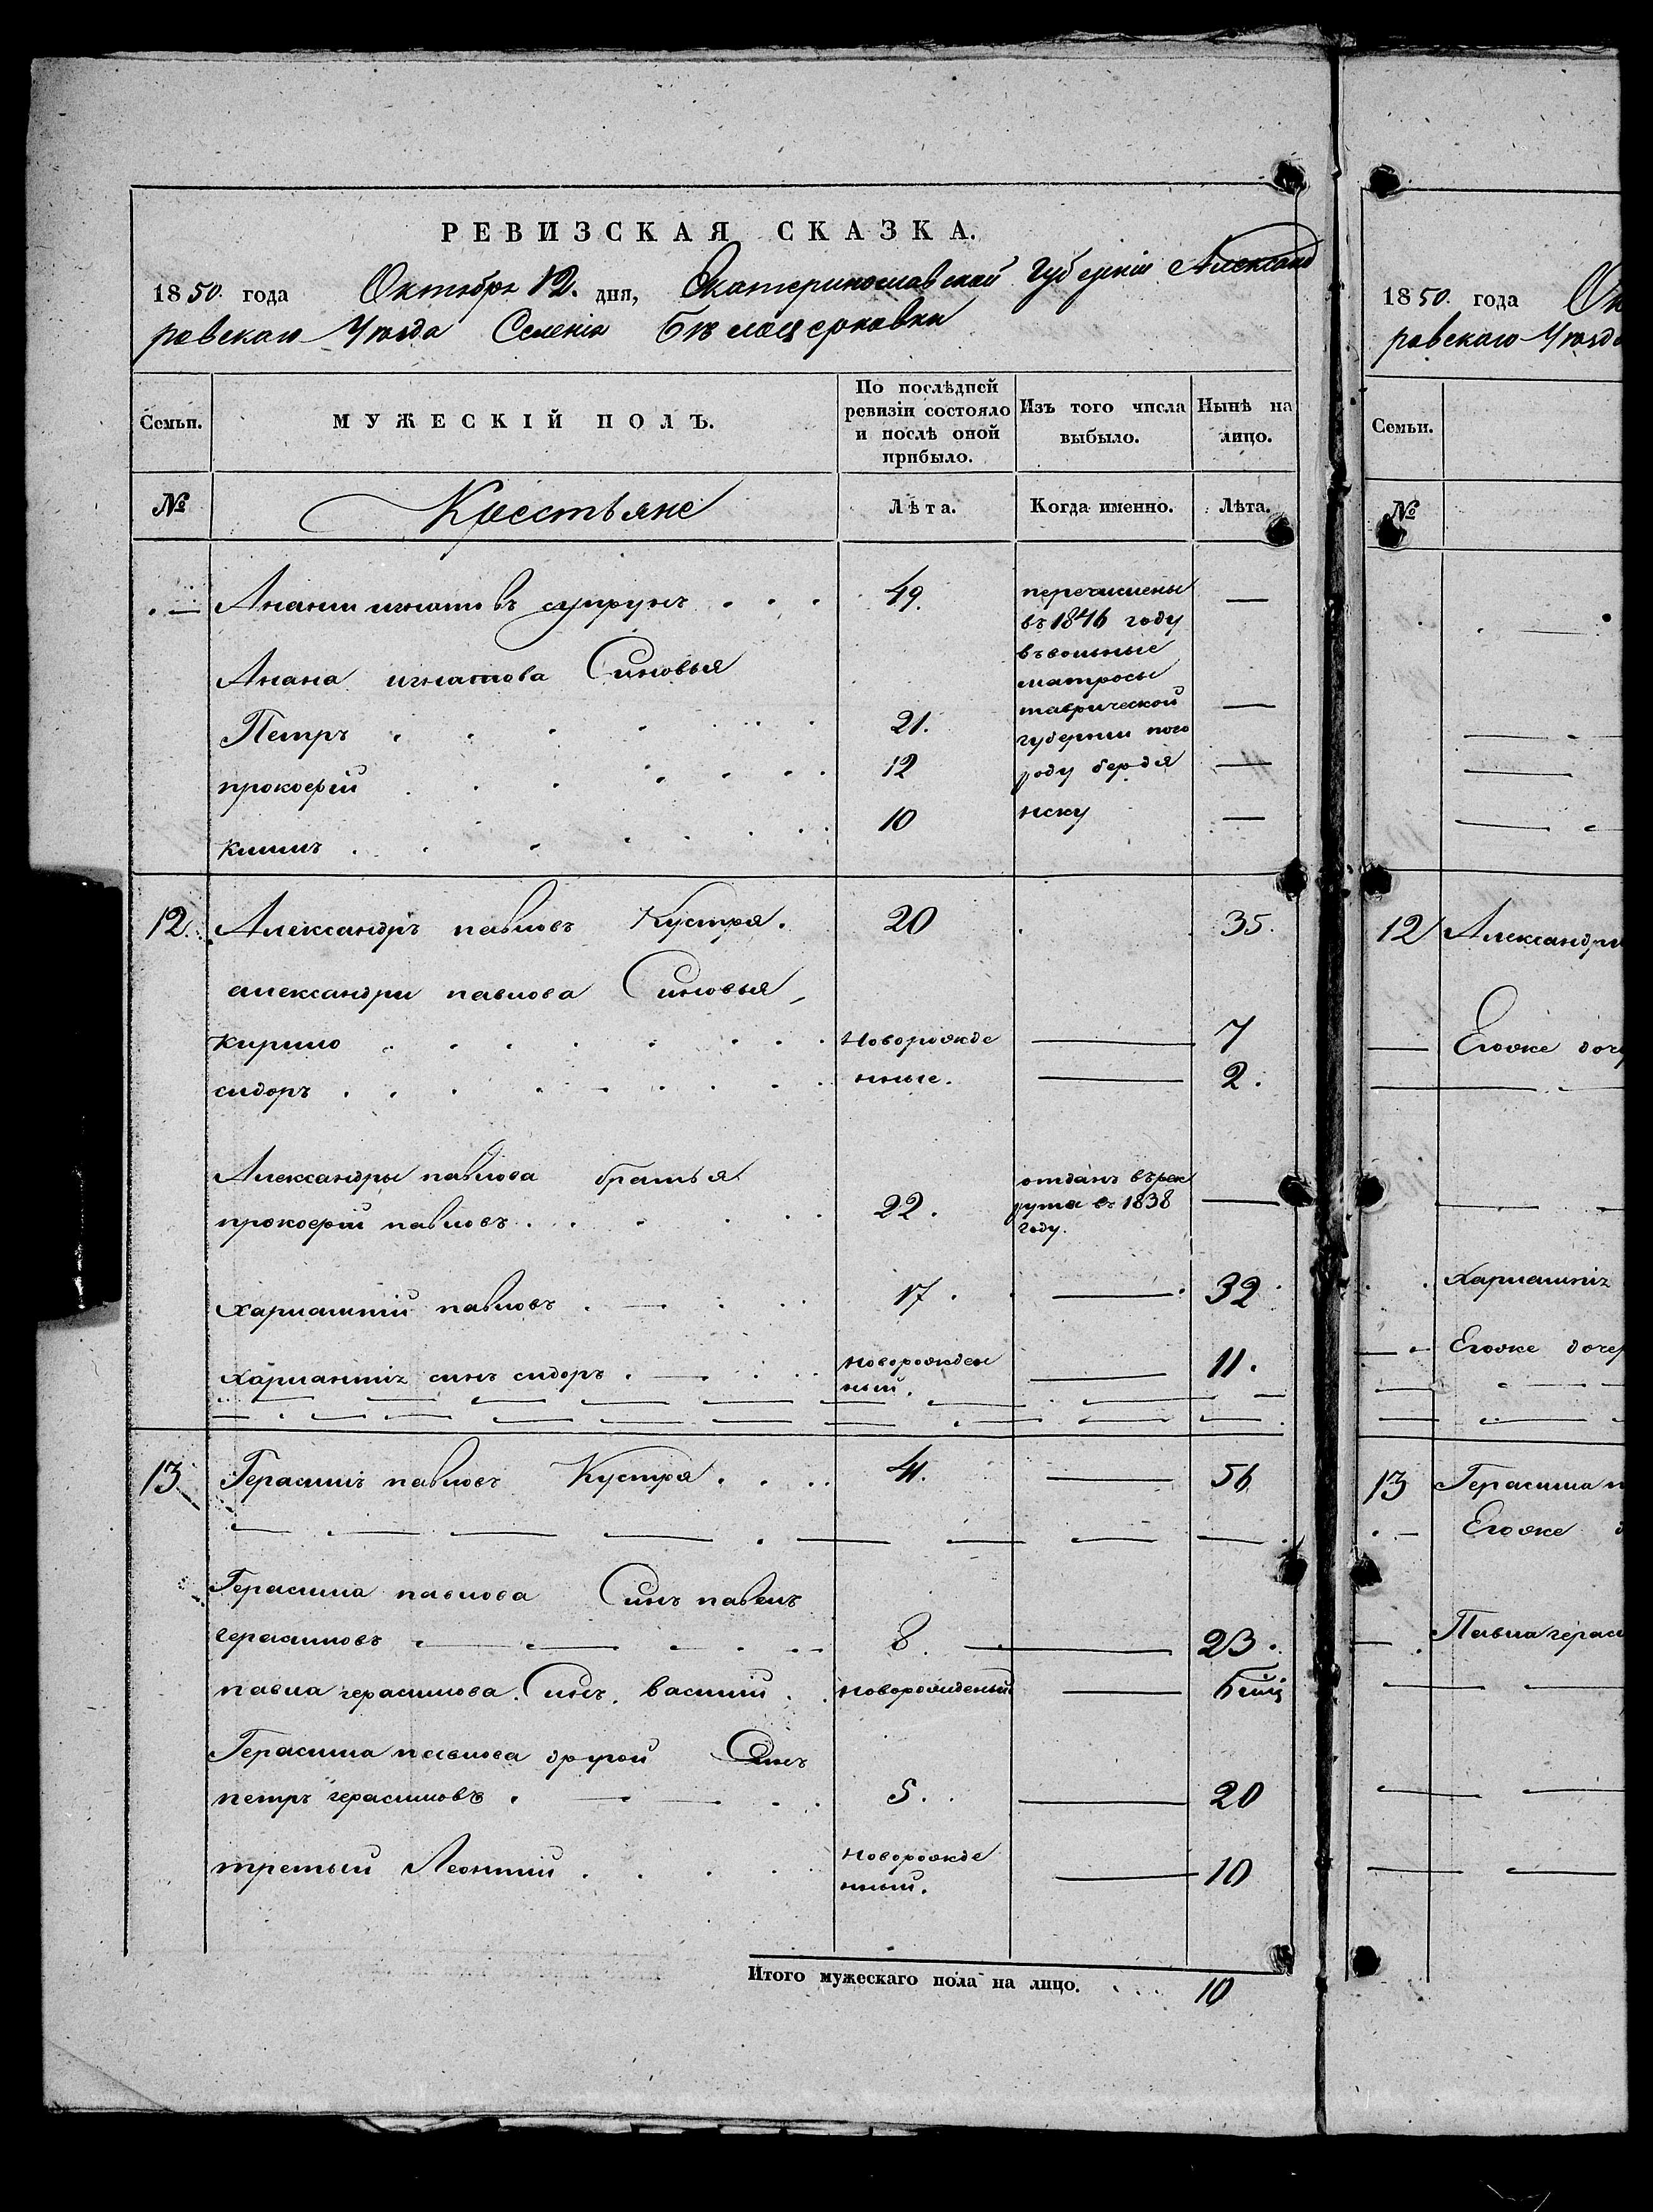 РЕВИЗСКАЯ СКАЗКА.
1850. года Октября 12. дня, Екатеринославской Губернiи Александ
ровскаго Уѣзда Селенiя Бѣлоцерковки
Семьи. МУЖЕСКІЙ ПОЛЪ. По послѣдней ревизіи состояло и послѣ оной прибыло. Изъ того числа выбыло. Нынѣ на лицо.
№ Крестьяне Лѣта. Когда именно. Лѣта.
Ананiи игнатовъ супрунъ 49. перечислены —
въ 1846 году
въ вольные
Анана игнатова Синовья матросы
таврической
Петръ 21. губернiи пого —
прокофiй 12 роду бердя —
климъ 10 нску —
12. Александръ павловъ Кустря. 20 35.
александри павлова Синовья
кирило Новорожде — 7
сидоръ нные. — 2.
Александры павлова братья отданъ въ рек
прокофiй павловъ. 22. рута въ 1838 —
году.
харлампiй павловъ 17. — 32
харлампiя синъ сидоръ. новорожден — 11.
ный.
13 Герасимъ павловъ Кустря. 41. — 56
Герасима павлова Синъ павелъ
герасимовъ 8. — 23.
павла герасимова. Синъ. василiй новорожденый —
Герасима павлова другой Синъ
петръ герасимовъ. 5. — 20
третый Леонтiй Новорожде — 10
нный.
Итого мужескаго пола на лицо. 10
1850. года Ок
ровскаго Уѣзд
Семьи.
№
12 Александр
Егоже доч
харлампiя
Егоже дочер
13 Герасима п
Егоже д
Павла герас